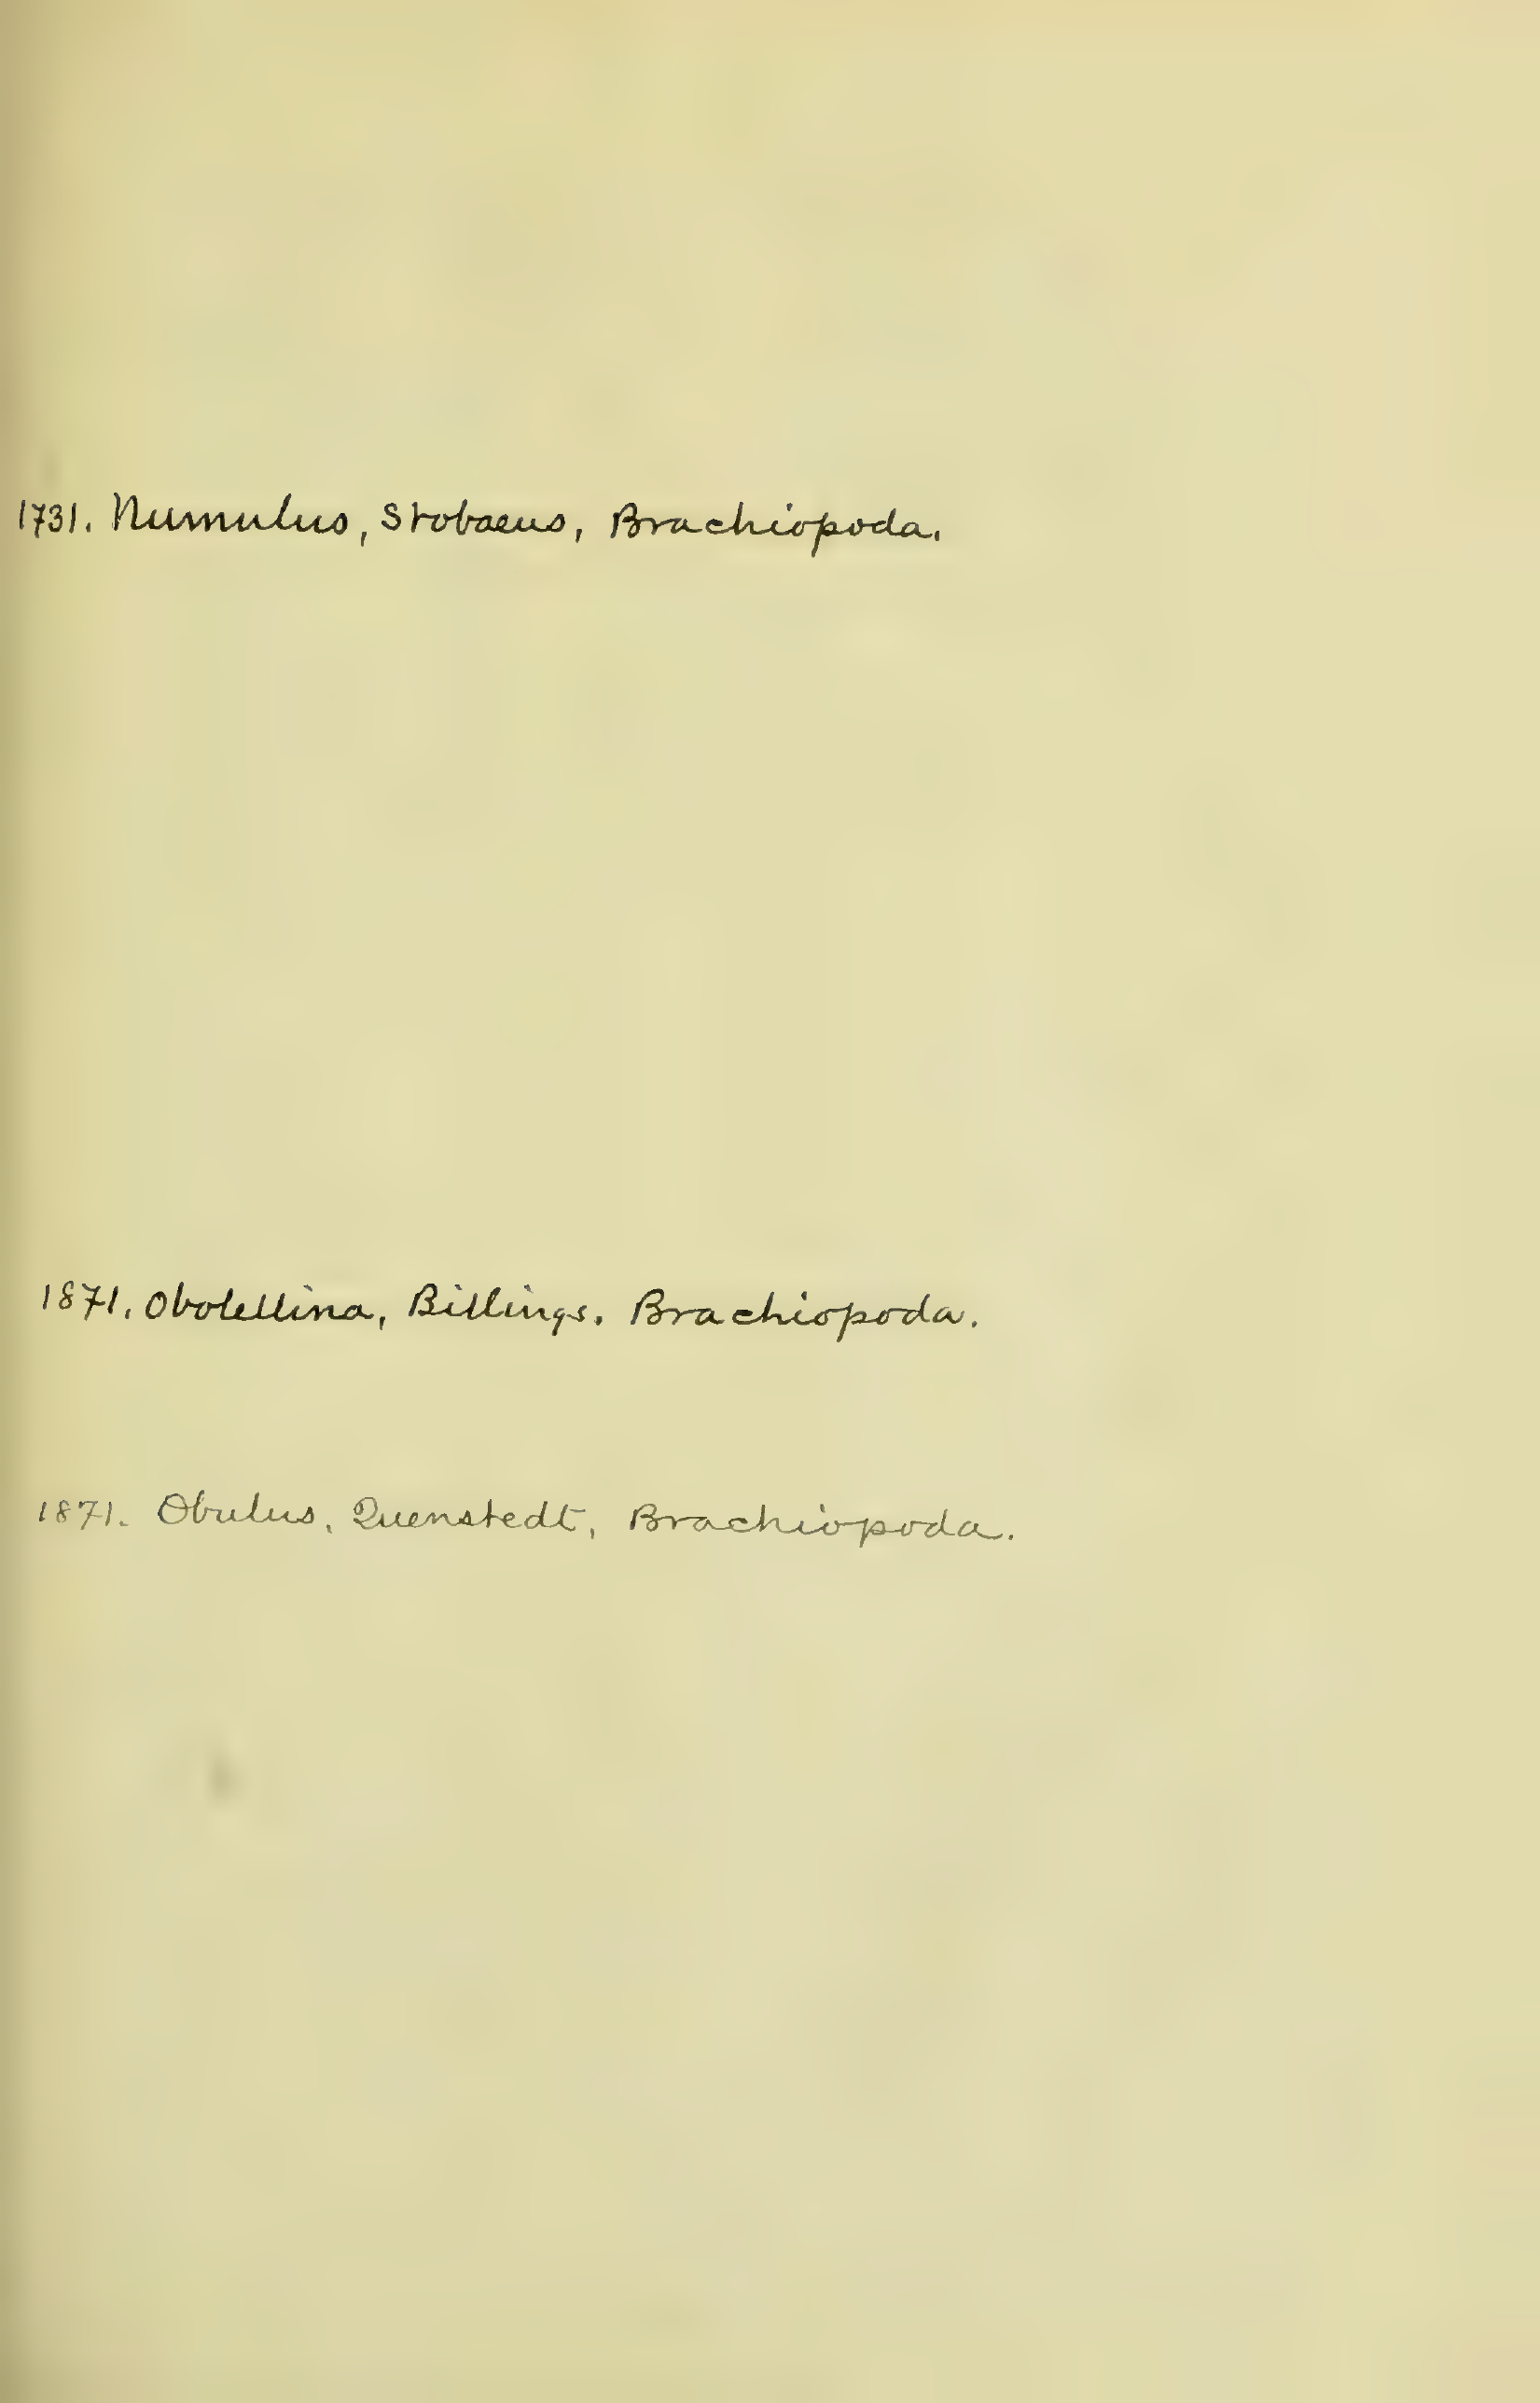 1731. Numulus, Stobaeus, Brachiopoda.
1871. Obolellina, Billings. Brachiopoda.
1871. Obulus, Quenstedt, Brachiopoda.